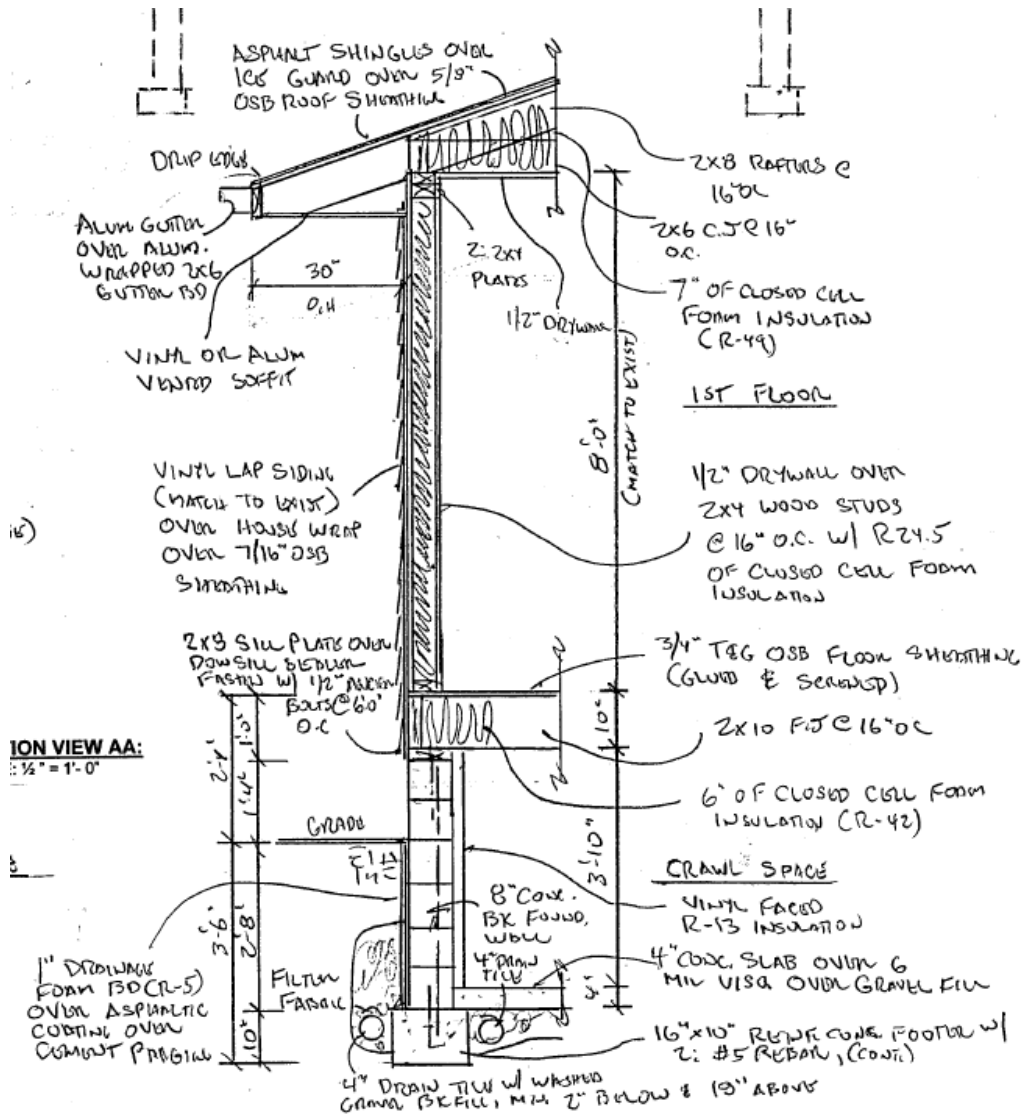 ASPHALT SHINGLES OVER
ICE GUARD OVER 5/8"
OSB ROOF SHEATHING
DRIP EDGE
ALUM GUTTER
OVER ALUM.
WRAPPED 2X6
GUTTER BD
30"
O.H
VINYL OR ALUM
VENTED SOFFIT
2: 2X4
PLATES
1/2" DRYWALL
2X8 RAFTERS @
16" OC
2X6 C.J @ 16"
O.C.
7" OF CLOSED CELL
FOAM INSULATION
(R-49)
1ST FLOOR
8'-0"
(MATCH TO EXIST)
VINYL LAP SIDING
(MATCH TO EXIST)
OVER HOUSE WRAP
OVER 7/16" OSB
SHEATHING
1/2" DRYWALL OVER
2X4 WOOD STUDS
@ 16" O.C. W/ R24.5
OF CLOSED CELL FOAM
INSULATION
2X8 SILL PLATE OVER
DOW SILL SEALER
FASTEN W/ 1/2" ANCHOR
BOLTS @ 6'0"
O.C
3/4" T&G OSB FLOOR SHEATHING
(GLUED & SCREWED)
10"
2X10 F.J @ 16" OC
6" OF CLOSED CELL FOAM
INSULATION (R-42)
ION VIEW AA:
: ½ " = 1'- 0"
2'-4"
1'-0"
1'-4"
GRADE
3'-10"
CRAWL SPACE
VINYL FACED
R-13 INSULATION
8" CONC.
BK FOUND.
WALL
4" DRAIN
TILE
4" CONC. SLAB OVER 6
MIL VISQ OVER GRAVEL FILL
4"
3'-6"
2'-8"
10"
1" DRAINAGE
FOAM BD (R-5)
OVER ASPHALTIC
COATING OVER
CEMENT PARGING
FILTER
FABRIC
16"X10" REINF CONC FOOTER W/
2: #5 REBAR, (CONT.)
4" DRAIN TILE W/ WASHED
GRAVEL BKFILL, MIN 2" BELOW & 18" ABOVE